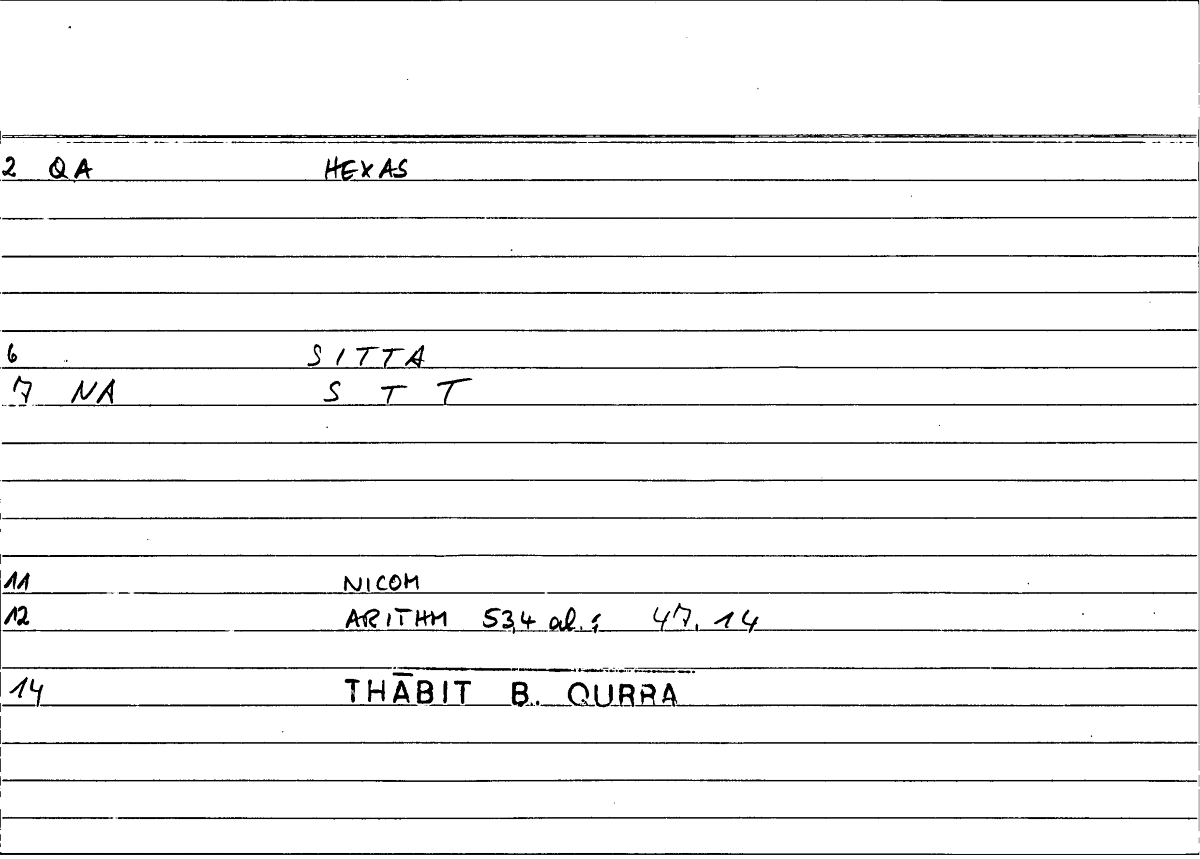 2 QA HEXAS
6 SITTA
7 NA S T T
11 NICOM
12 ARITHM 53,4 al.; 47.14
14 THĀBIT B. QURRA